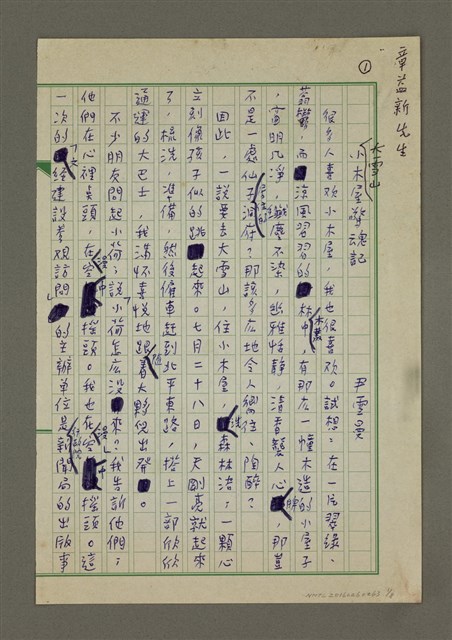 章益新先生
①
大雪山
小木屋驚魂記
尹雪曼
很多人喜歡小木屋,我也很喜歡。試想:在一片翠綠、
蓊鬱,而涼風習習的林中,有那広一幢木造的小屋子
,窗明几淨,纖塵不染,幽雅恬靜,清香襲人心脾,那豈
不是一處仙子居住的洞府?那該多広地令人嚮往、陶醉?
因此,一說要去大雪山,住小木屋,洗森林浴,一顆心
立刻像孩子似的跳起來。七月二十八日,天剛亮就起來
了,梳洗,準備,然後僱車趕到北平東路,搭上一部欣欣
通運的大巴士,我滿怀喜悅地跟着大夥兒出發。
不少朋友問起小荷;說小荷怎広沒來?我告訴他們:
他們在心裡奌頭,在空中搖頭。我也在空中搖頭。這
一次的「文經建設參觀訪問」的主辦單位是新聞局的出版事